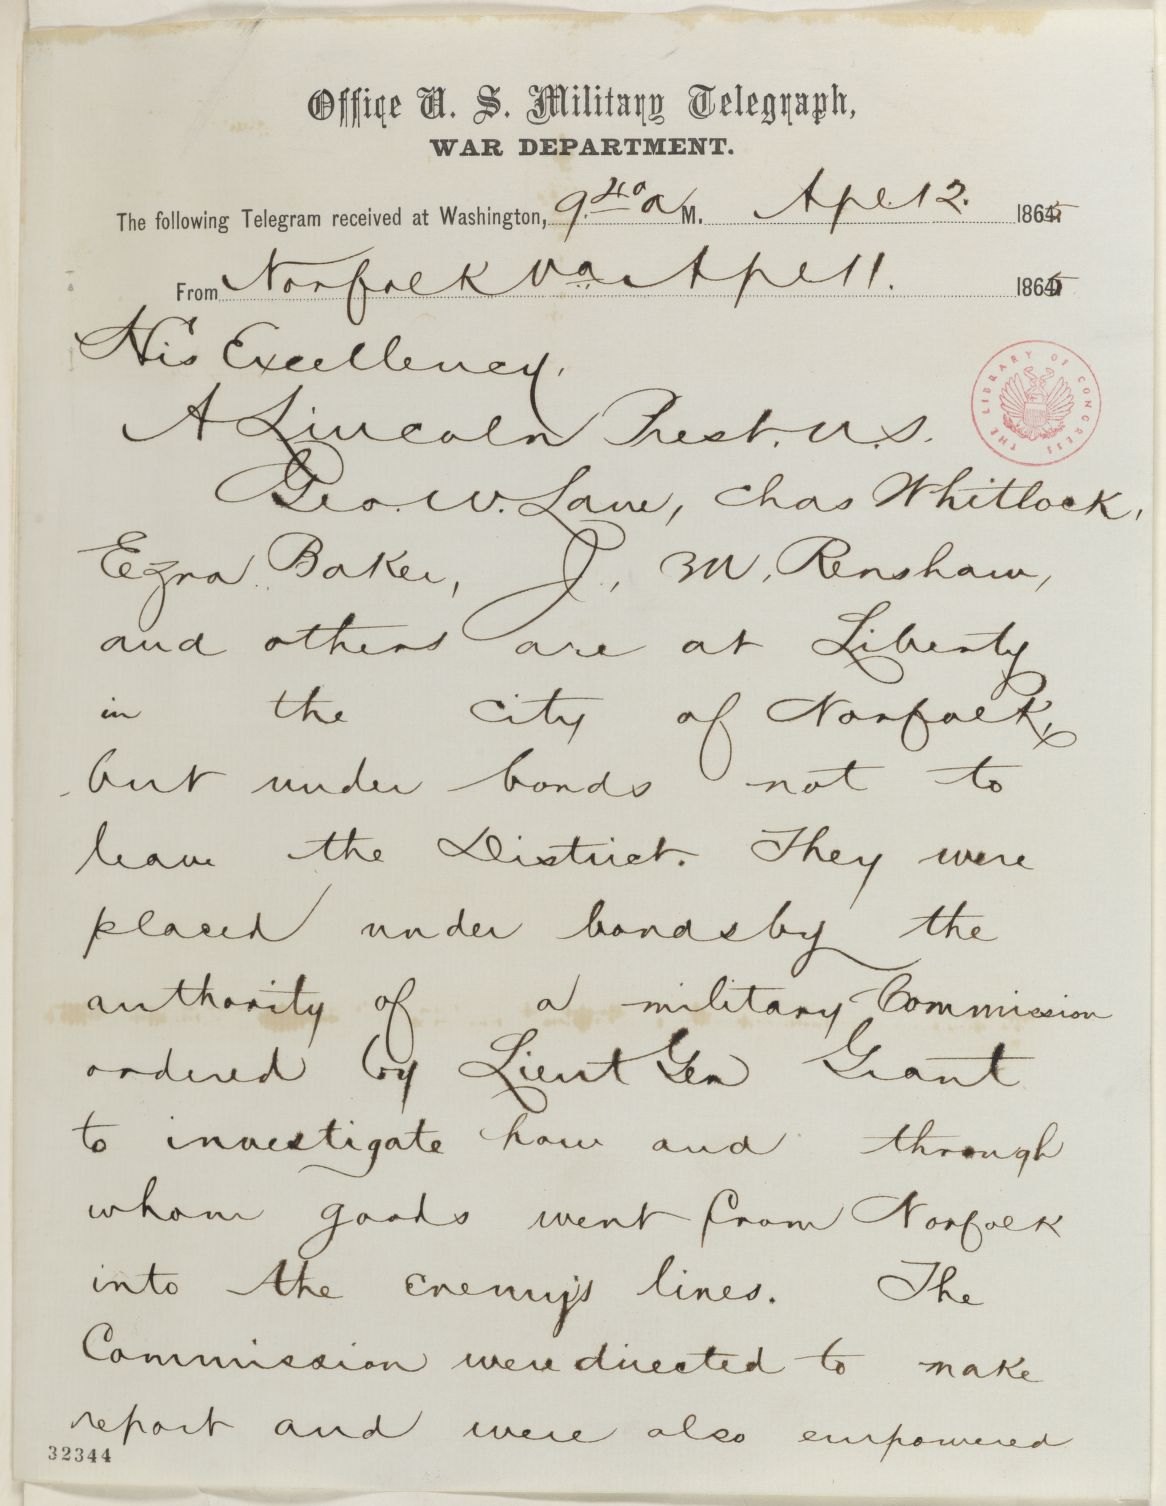 Office U. S. Military Telegraph,
WAR DEPARTMENT.
The following Telegram received at Washington, 9.40 a M. Apl. 12. 1865
From Norfolk Va. Apl 11. 1865
His Excellency,
A Lincoln Prest. U.S.
Geo. W. Lane, Chas Whitlock,
Ezra Baker, J., M, Renshaw,
and others are at Liberty
in the city of Norfolk,
but under bonds not to
leave the District. They were
placed under bonds by the
authority of a military Commission
ordered by Lieut Gen Grant
to investigate how and through
whom goods went from Norfolk
into the enemy's lines. The
Commission were directed to make
report and were also empowered
32344
THE LIBRARY OF CONGRESS